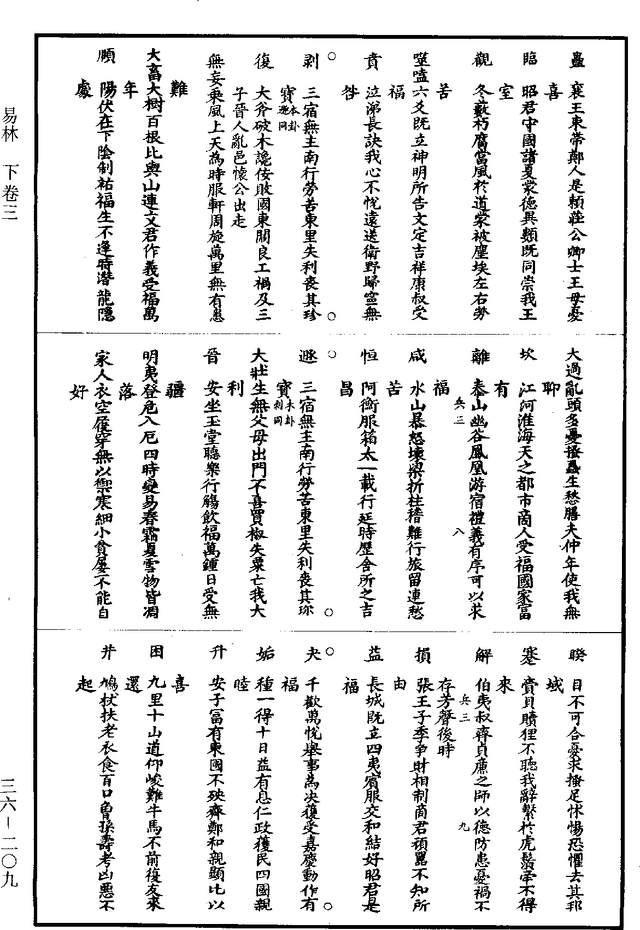 易林　下卷三
三六—二〇九
蠱　襄王東帶鄭人是賴莊公卿士王母憂
喜
臨　昭君守國諸夏蒙德異類既同崇我王
室
觀　冬藪朽腐當風於道蒙被塵埃左右勞
苦
噬嗑六爻既立神明所告文定吉祥康叔受
福
賁　泣涕長訣我心不悅遠送衛野歸寧無
咎
剥　三宿無主南行勞苦東里失利喪其珍
寶 本卦遯同
復　大斧破木隱佞敗國東關良工禍及三
子晉人亂邑懷公出走
無妄乘風上天為時服軒周旋萬里無有患
難
大畜大樹百根比與山連文君作義受福萬
年
頤　陽伏在下陰制祐福生不逢時潛龍隱
處
大過亂頭多憂搔蝨生愁膳夫仲年使我無
聊
坎　江河淮海天之都市商人受福國家富
有
離　泰山幽谷鳳凰游宿禮義有序可以求
福
兵三　八
咸　水山暴怒壞梁折柱稽難行旅留連愁
苦
恒　阿衡服箱太一載行延時歷舍所之吉
昌
遯　三宿無主南行勞苦東里失利喪其珎
寶 本卦剥同
大壯生無父母出門不喜買椒失粟亡我大
利
晉　安坐玉堂聽樂行觴飲福萬鍾日受無
疆
明夷登危入厄四時變易春霜夏雪物皆凋
落
家人衣空履穿無以禦寒細小貧屢不能自
好
睽　目不可合憂求搔足怵惕恐懼去其邦
域
蹇　賫貝贖狸不聽我辭繫於虎鬚牽不得
來
解　伯夷叔齊貞廉之師以德防患憂禍不
存芳聲後時
兵三　九
損　張王子季爭財相制商君頑嚚不知所
由
益　長城既立四夷賓服交和結好昭君是
福
夬　千歡萬悅舉事為決獲受嘉慶動作有
福
姤　種一得十日益有息仁政獲民四國親
睦
升　安子富有東國不殃齊鄭和親顯比以
喜
困　九里十山道仰峻難牛馬不前復友來
還
井　鳩杖扶老衣食百口曾孫壽考凶惡不
起